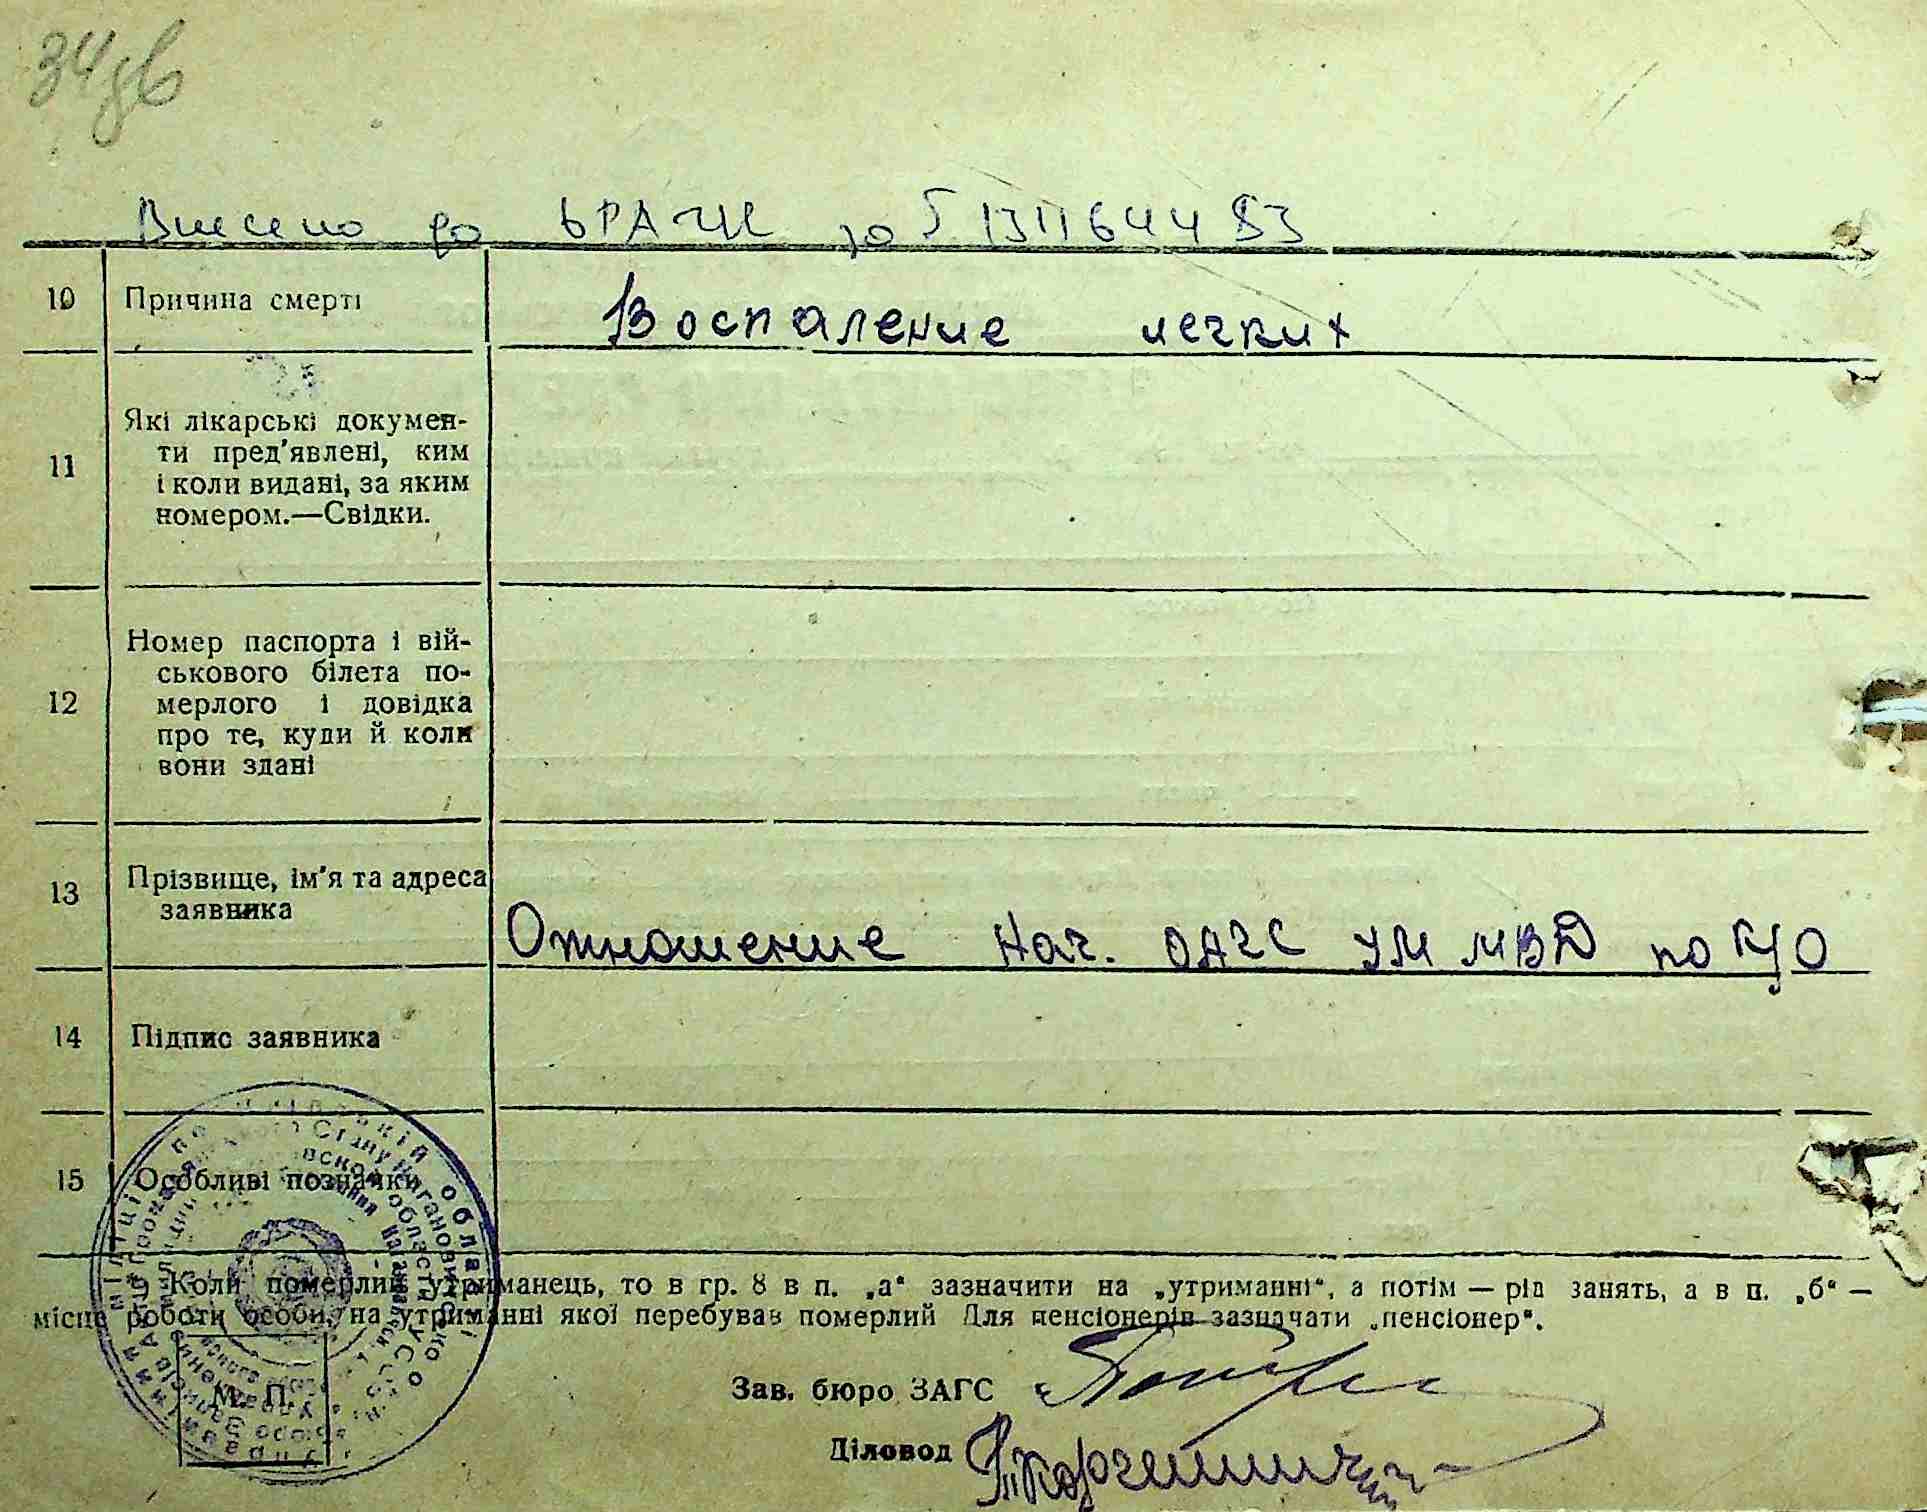 34 зв
Внесено до ДРАЦС
10 Причина смерті Воспаление легких
11 Які лікарські докумен-
ти пред'явлені, ким
і коли видані, за яким
номером.—Свідки.
12 Номер паспорта і вій-
ськового білета по-
мерлого і довідка
про те, куди й коли
вони здані
13 Прізвище, ім'я та адреса
заявника
Отношение Нач. ОАГС УМ МВД по
14 Підпис заявника
15 Особливі позначки
Коли померлий утриманець, то в гр. 8 в п. „а“ зазначити на „утриманні“, а потім — рід занять, а в п. „б“ —
місце роботи особи, на утриманні якої перебував померлий Для пенсіонерів зазначати „пенсіонер“.
Зав. бюро ЗАГС
М. П.
Діловод